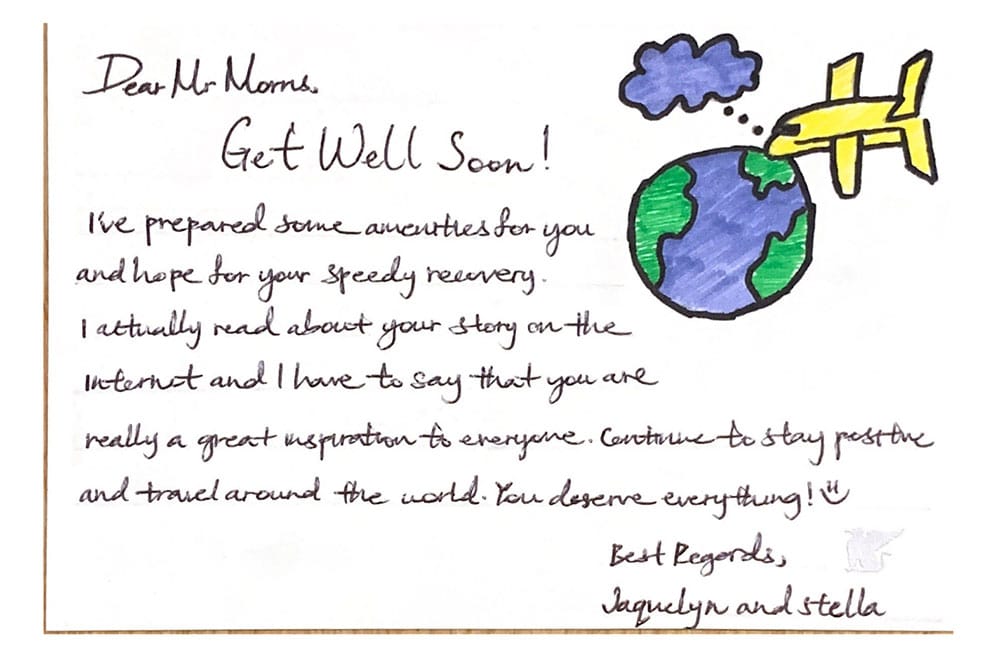 Dear Mr Morris,
Get Well Soon!
I've prepared some amenities for you
and hope for your speedy recovery.
I actually read about your story on the
internet and I have to say that you are
really a great inspiration to everyone. Continue to stay positive
and travel around the world. You deserve everything!
Best Regards,
Jaquelyn and Stella